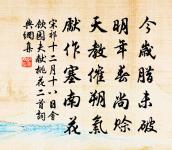 今歲臘未破
明年春尚賒
天教催朔氣
獻作塞南花
宋祁十二月十八日會
飲園夫獻桃花二首詞
典網集